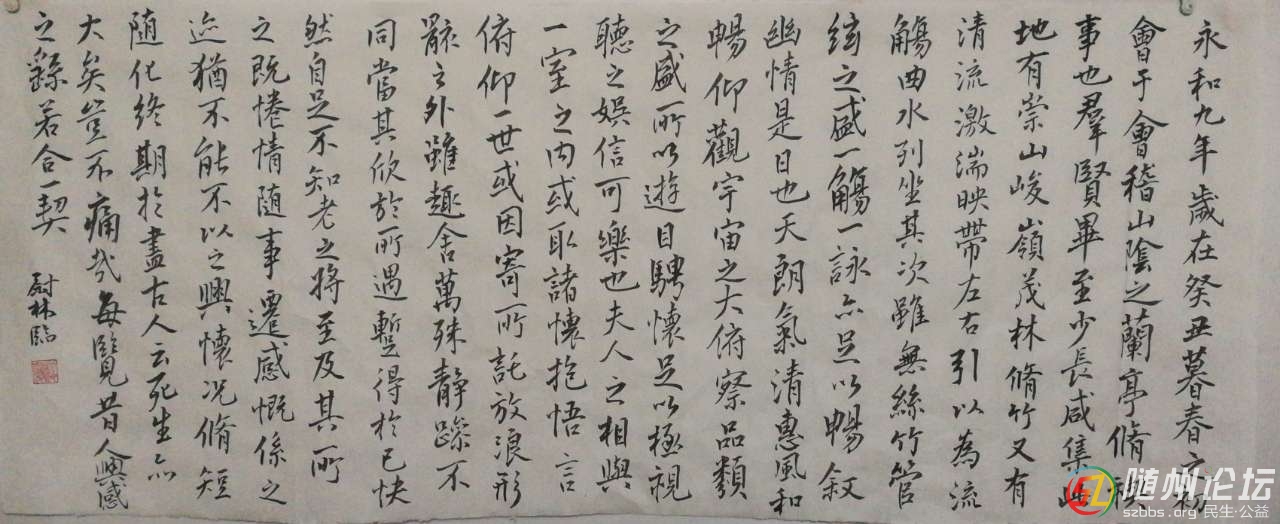 永和九年歲在癸丑暮春之初
會于會稽山陰之蘭亭脩禊
事也羣賢畢至少長咸集此
地有崇山峻嶺茂林脩竹又有
清流激湍映帶左右引以為流
觴曲水列坐其次雖無絲竹管
絃之盛一觴一詠亦足以暢敘
幽情是日也天朗氣清惠風和
暢仰觀宇宙之大俯察品類
之盛所以遊目騁懷足以極視
聽之娛信可樂也夫人之相與
俯仰一世或因寄所託放浪形
一室之內或取諸懷抱悟言
骸之外雖趣舍萬殊靜躁不
同當其欣於所遇暫得於己快
然自足不知老之將至及其所
之既惓情随事遷感慨係之
迹猶不能不以之興懷况脩短
随化終期於盡古人云死生亦
大矣豈不痛哉每覽昔人興感
之繇若合一契
尉林臨
随州论坛
szbbs.org 民生·公益